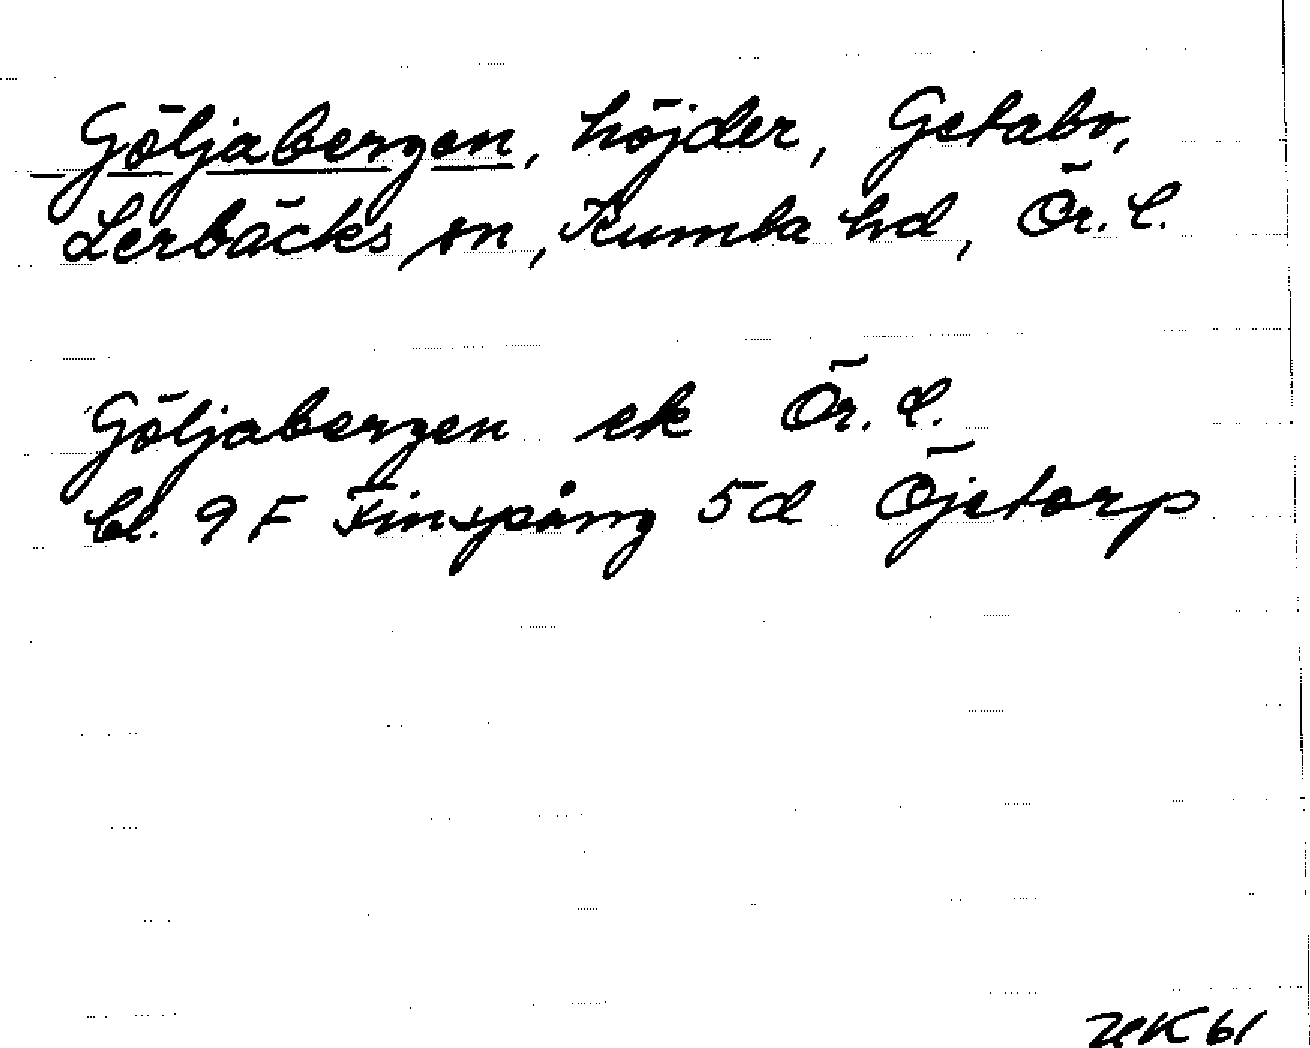 Göljabergen, höjder, Getabo,
Lerbäcks sn, Kumla hd, Ör. l.
Göljabergen ek Ör. l.
bl. 9 F Finspång 5d Öjetorp